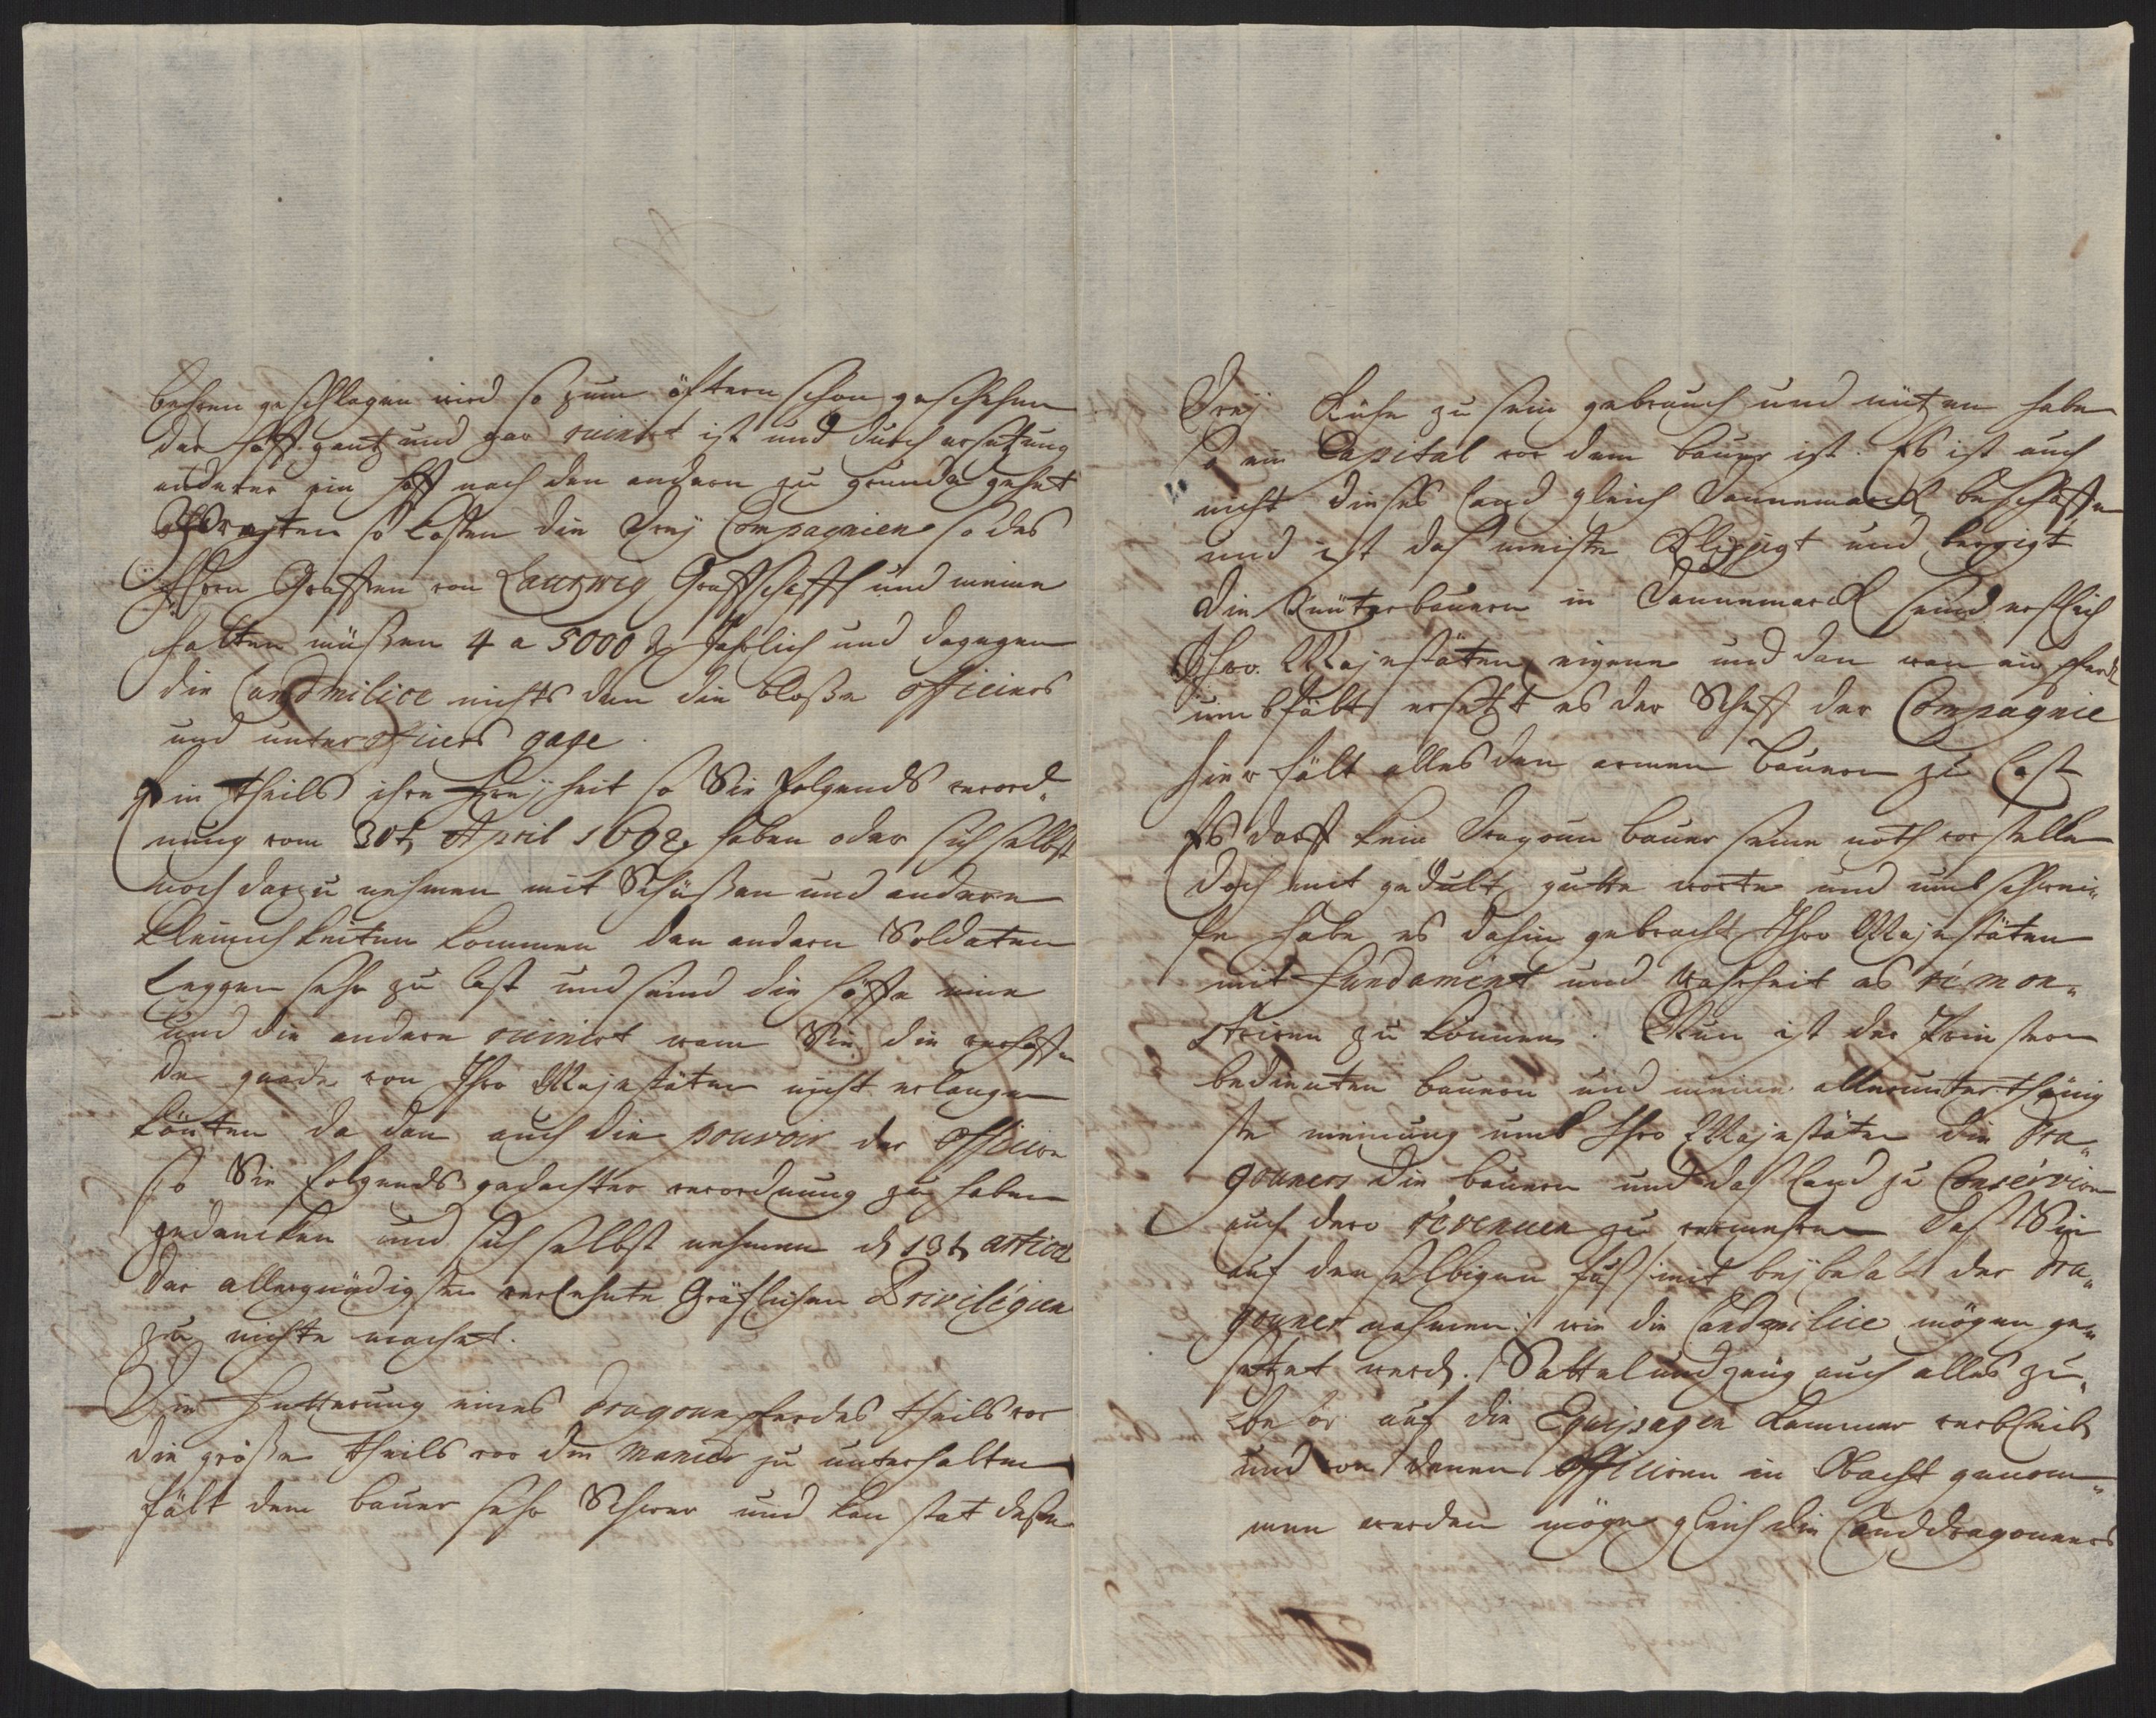 behren geschlagen wird so zum öftern schon geschehen
der hoff gantz und gar ruinirt ist und durch ersetzung
anderer ein hoff nach den andern zu grunde gehet
so kosten die Dreij Compagnien so des
Hern Graffen von Laurwig Graffschafft und meine
halten müßen 4 a 5000 Jahrlich und dagegen
die Landmilice nichts den die bloße officiers
und unterofficiers gage
Ein theils ihre Freijheit so Sie folgends verord„
nung vom 30t April 1698 haben oder sich selbst
noch darzu nehmen mit Schüßen und andere
Kleinichkeiten kommen den andern Soldaten
Leggen sehr zu last und seind die höffe eine
und die andern ruinirt wann Sie die verhoffen
de gnade von Ihro Majestäten nicht erlangen
könten da dan auch die pouvoir der Officirn
so Sie folgends gedachter verordnung zu haben
gedencken und sich selbst nehmen d 13t articl
der allergnädigsten verlehnte Gräflichen Privilégien
zu nichte machet.
Die Futterung eines dragoune pferdes theils vor
die größe theils vor den manier zu unterhalten
fält dem bauer sehr Schwer und kan stat deßen
Dreij Kühe zu sein gebrauch und nützen haben
so ein Capital vor dem bauer ist. Es ist auch
nicht dieses land gleich Dannemarck beschaffen
und ist das meiste Klippigt und bergigt
die Reüterbauern in Dannemarck seind erstlich
Ihro Majestäten eigene und dan wan ein pferd
umbfält ersetzt es der Cheff der Compagnie
hier fält alles den armen Bauern zu last
Es darff kein Dragoun bauer seine noth vorstellen
doch mit gedult gutte worte und umbschwei„
fe habe es dahin gebracht Ihro Majestäten
mit Fundament und Wahrheit es rémon„
striren zu können. Nun ist der
bedienten bauern und meine allerunterthänig
ste meinung umb Ihro Majestäten die Dra„
gouners die bauern und das land zu Consérvirn
auch dero révenuen zu vermehren daß Sie
auf den selbigen fuß mit beijbehalt der dra„
gouner nahmen wie die Landmilice mögen ge„
setzet werd. Sattel und zeug auch alles zu„
behör auf die Equipagen Kammer verbleib
und von denen Officiren in Obacht genom„
men werden möge gleich die Landdragouners